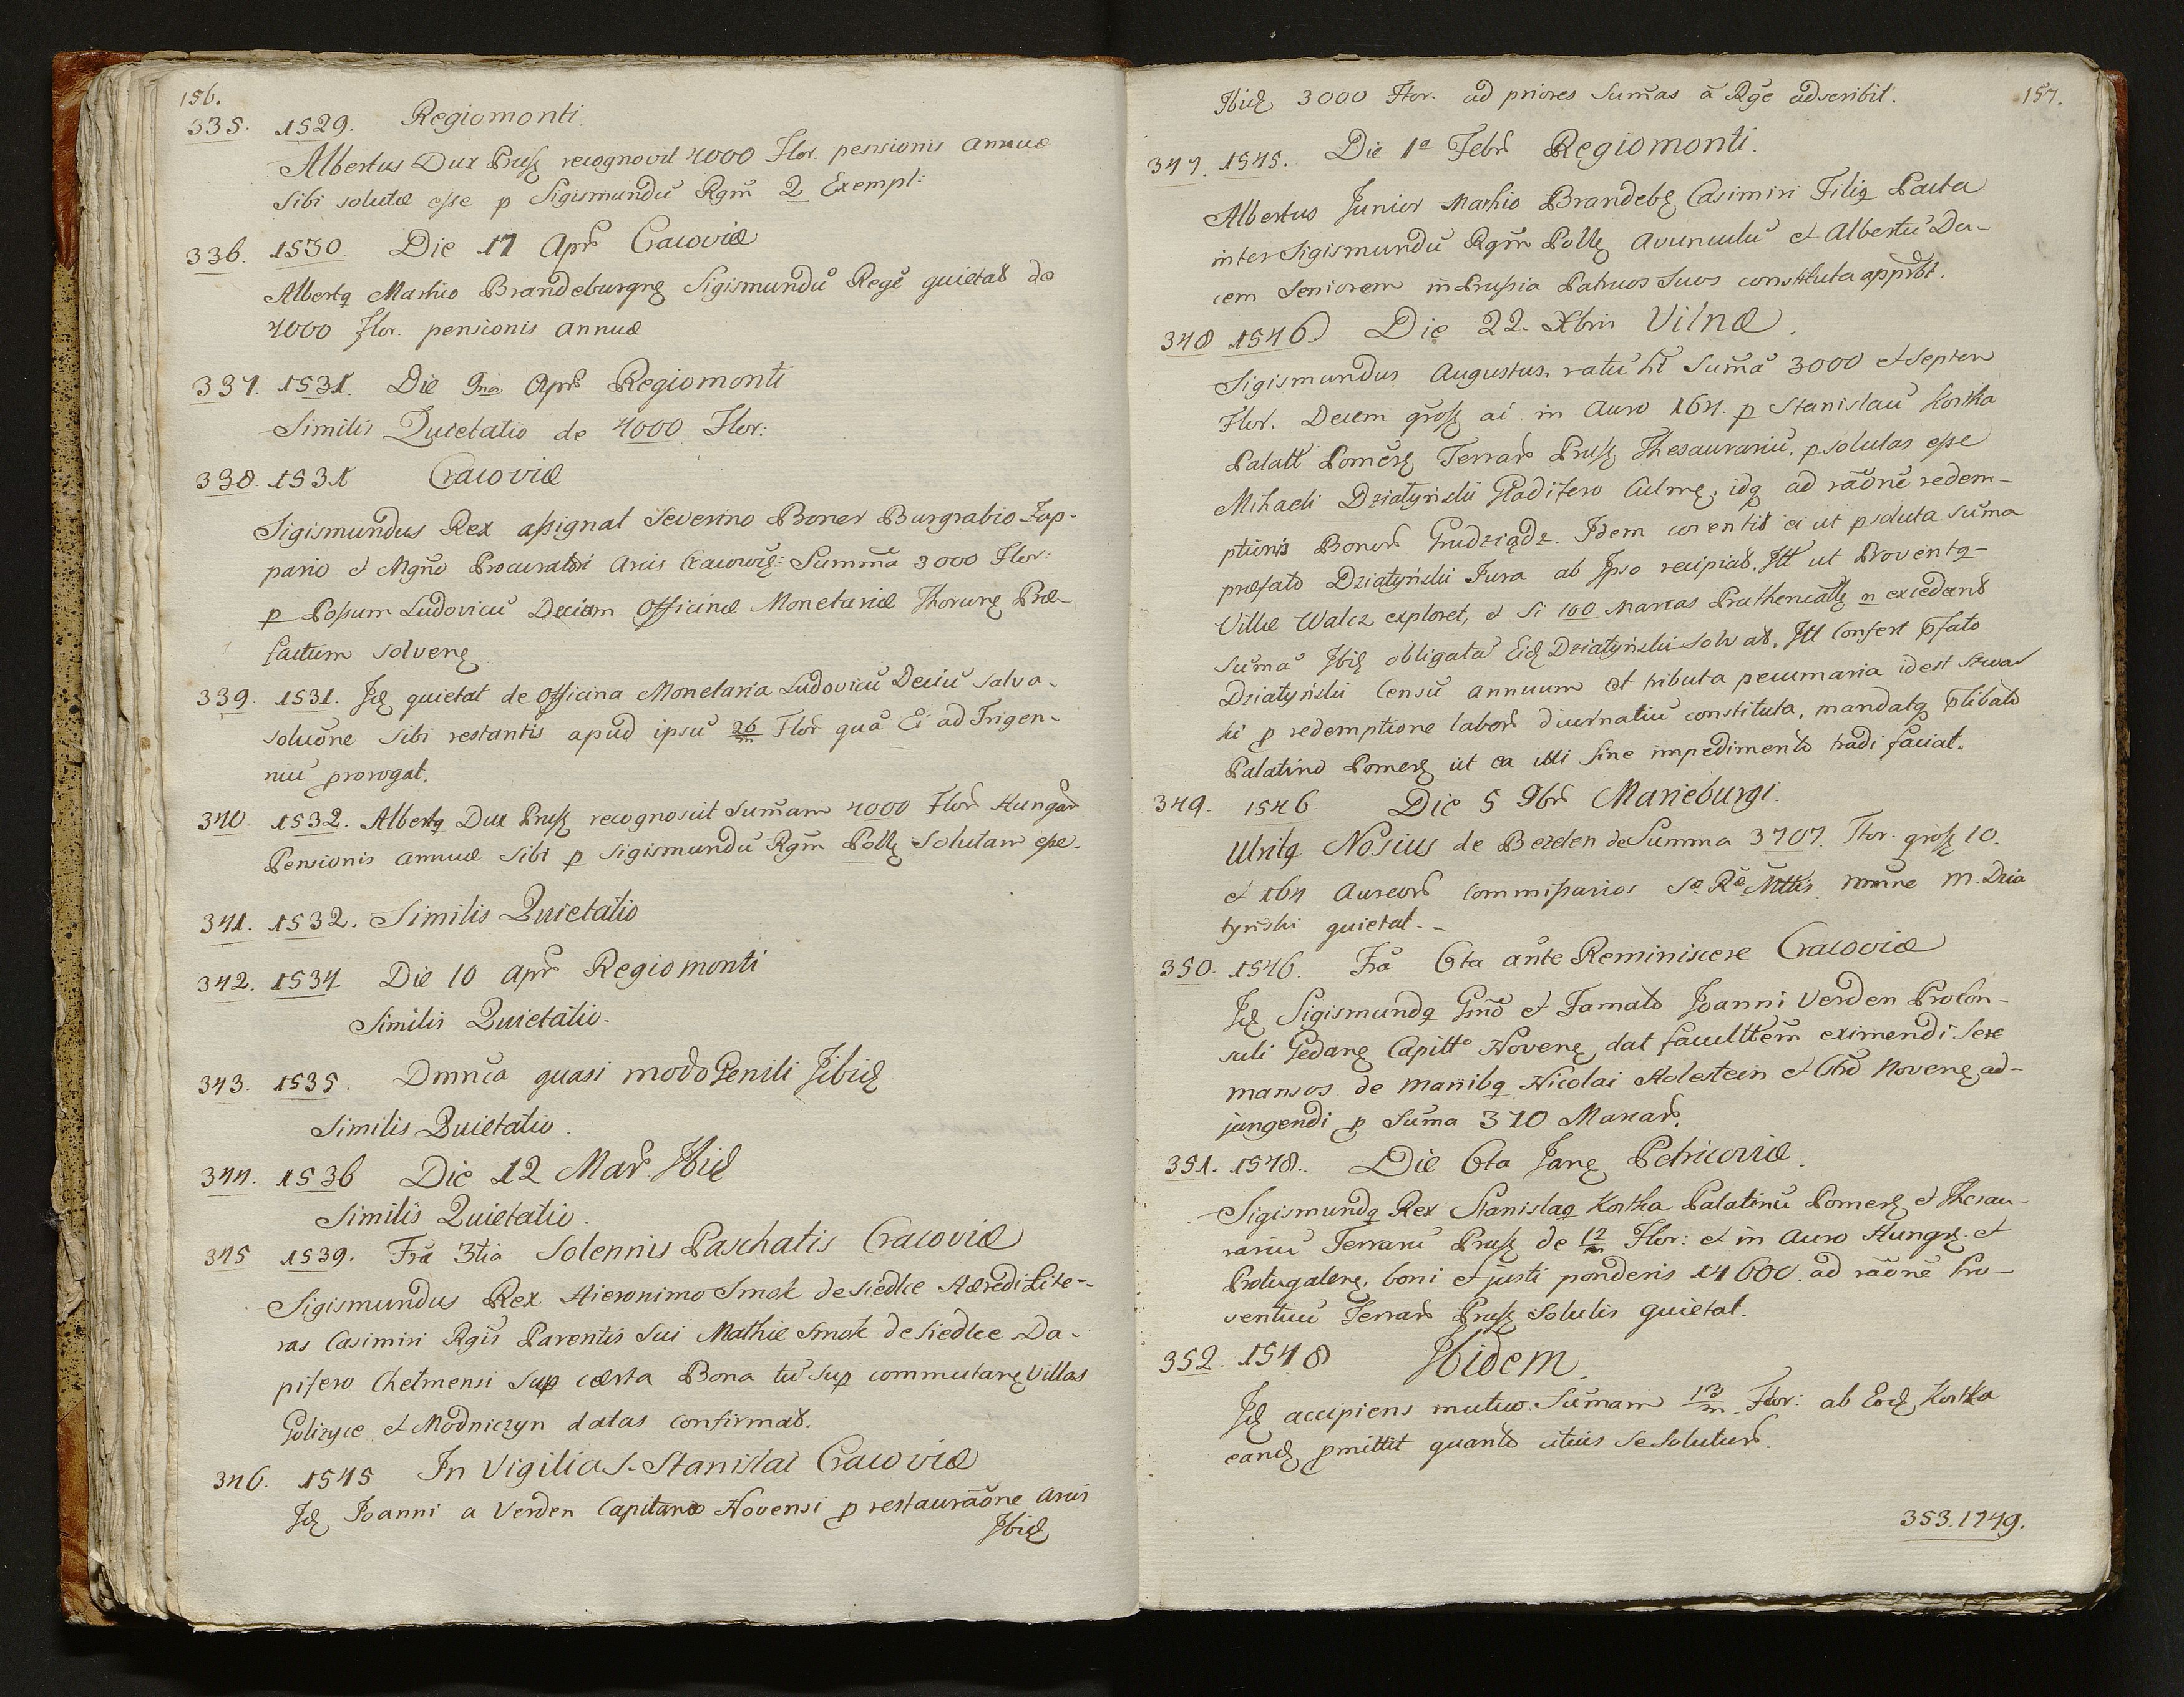 156.
335. 1529. Regiomonti.
Albertus Dux Prusę recognovit 4000 Flor. pensionis annuæ
Sibi solutæ esse p Sigismundū Rgm̄ 2 Exempl:
336. 1530. Die 17 Apr̄ Cracoviæ
Albertq Marhio Brandeburgnę Sigismundū Regē quietat de
4000 flor. pensionis annuæ
337. 1531. Die 9na Apr̄ Regiomonti
Similis Quietatio de 4000 Flor:
338. 1531 Cracoviæ
Sigismundus Rex assignat Severino Boner Burgrabio Zup-
pario et Mgn̄o Procuratori Arcis Cracovię: Summā 3000 Flor:
p Possum Ludovicū Decium Officinæ Monetariæ Thorunę Præ-
factum solvenę
339. 1531. Idę quietat de Officina Monetaria Ludovicū Deciū salva-
soluōne sibi restantis apud ipsū 26/m Flor̄ quā Ei ad Trigen-
niū prorogat.
340. 1532. Albertq Dux Prusę recognoscit Sum̄am 4000 Flor̄ Hungar̄
Pensionis annuæ sibi p Sigismundū Rgm̄ Pollę Solutam esse.
341. 1532. Similis Quietatio
342. 1534. Die 10 Apr̄ Regiomonti
Similis Quietatio.
343. 1535. Dmnca quasi modo Geniti Ibidę
Similis Quietatio.
344. 1536 Die 12 Mar̄ Ibidę
Similis Quietatio.
345 1539. Frā 3tia Solennis Paschatis Cracoviæ
Sigismundus Rex Hieronimo Smok de Siedlce Hæredi Lite-
ras Casimiri Rgis Parentis Sui Mathie Smok de Siedlce Da-
pifero Chełmensi Sup cærta Bona tū Sup commutanę Villas
Goliszyce et Modniczyn datas confirmat.
346. 1545 In Vigilia S. Stanislai Cracoviæ
Idę Joanni a Verden Capitaneo Novensi p restaurāone Arcis
Ibidę
157.
Ibidę 3000 Flor. ad priores Sum̄as ā Rge adscribit.
347. 1545. Die 1a Febr̄ Regiomonti.
Albertus Junior Marhio Brandebę Casimiri Filiq Pacta
inter Sigismundū Rgm̄ Pollę Avunculū et Albertū Du-
cem Seniorem in Prussia Patruos Suos constituta approbt.
348 1546 Die 22. Xbris Vilnæ.
Sigismundus Augustus, ratū ht Sum̄ā 3000 et Septem
Flor. Decem grosę ac in Auro 164. p Stanislaū Kostka
Palatt Pomerę Terrar̄ Prusę Thesaurariū, p solutas esse
Mihaeli Działyński Gladifero Culmę, idq ad raōnē redem-
ptionis Bonor̄ Grudziądz. Idem coventit ei ut p soluta suma
præfato Działyński Jura ab Ipso recipiat. Itt ut Proventq-
Villæ Walcz exploret, et Si 100 Marcas Pruthenicallę n excedant
Sumā Ibidę obligatā Eidę Działyński solvat. Itt Confert p̄fato
Działyński Censū annuum et tributa pecuniaria idest
ki p redemptione labor̄ diurnatiū constituta, mandatq p̄libato
Palatino Pomerę ut ea illi Sine impedimento tradi faciat.
349. 1546. Die 5 9br̄ Marieburgi.
Ulritq Nosius de Bezden de Summa 3707. Flor. grosę 10.
et 164 Aureor̄ Commissarios Se Re Mttis nomine M. Dzia
łyński quietat.-
350. 1546. Frā 6ta ante Reminiscere Cracoviæ
Idę Sigismundq Gn̄o et Famato Joanni Verden Procon-
suli Gedanę Capittō Novenę dat facultt̄em eximendi Sexe
mansos de manibq Nicolai Holestein et Novenę ad-
jungendi p Suma 370 Marcar̄.
351. 1548. Die 6ta Janę Petricoviæ.
Sigismundq Rex Stanislaq Kostka Palatinū Pomerę et Thesau-
rariū Terrarū Prusę de 12/m Flor: et in Auro Hungrę. et
Protugalenę. boni et justi ponderis 14600. ad raōnē Pro-
ventuū Terrar̄ Prusę Solutis quietat.
352. 1548 Ibidem.
Idę accipiens mutuo Sumam 13/m. Flor: ab Eodę Kostka
eandę pmittit quanto citius Se Soluturū.
353. 1749.